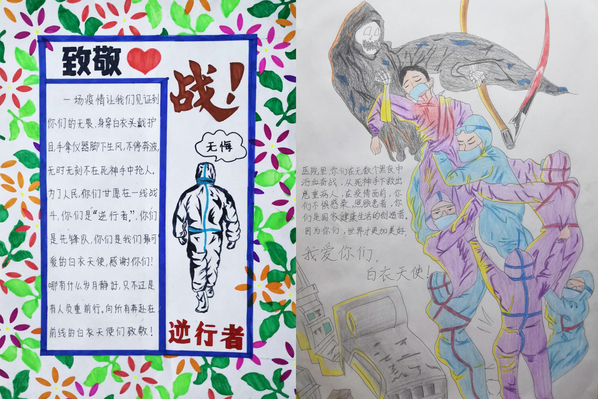 致敬
战！
一场疫情让我们见证到
你们的无畏，身穿白衣头戴护
目手拿仪器脚下生风，不停奔波，
无时无刻不在死神手中抢人，
为了人民，你们甘愿在一线战
斗，你们是“逆行者”，你们
是先锋队，你们是我们最可
爱的白衣天使，感谢你们！
哪有什么岁月静好，只不过是
有人负重前行，向所有奔赴在
前线的白衣天使们致敬！
无悔
逆行者
医院里，你们在无数个黑夜中
浴血奋战，从死神手下救出
危重病人，在疫情面前，你
们不惧感染，照顾患者，你
们是国家健康生活的创造者，
因为你们，世界才更加美好。
我爱你们，
白衣天使！